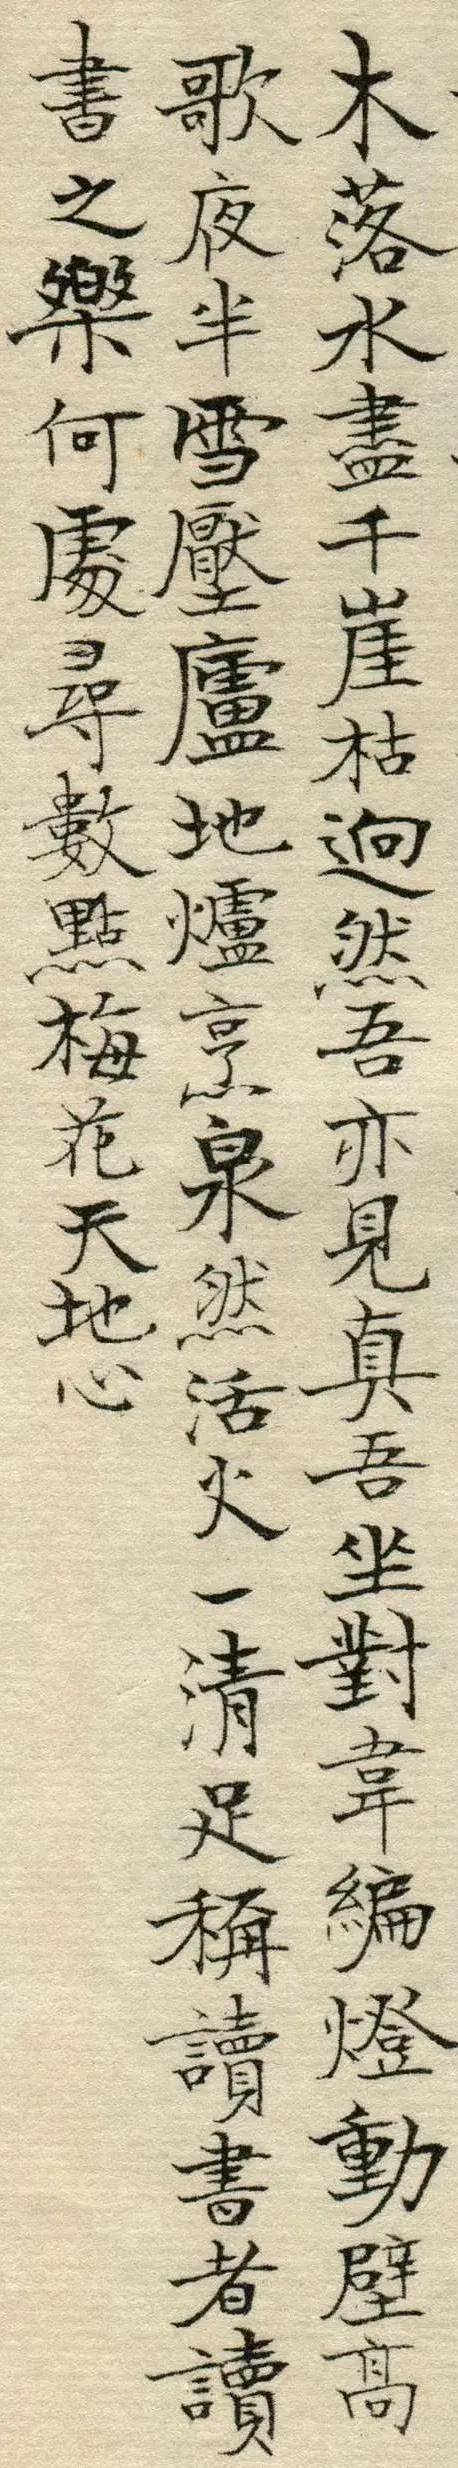 木落水盡千崖枯迥然吾亦見真吾坐對韋編燈動壁高
歌夜半雪壓廬地爐烹泉然活火一清足稱讀書者讀
書之樂何處尋數點梅花天地心